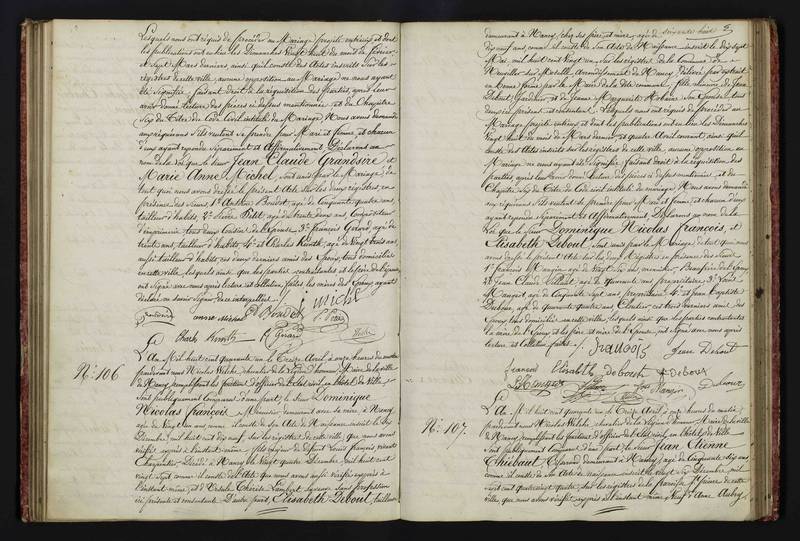 Lesquels nous ont requis de procéder au Mariage projeté entr'eux et dont
les publications ont eu lieu les Dimanches Vingt huit du mois de février
et Sept Mars derniers ainsi qu'il conste des Actes inscrits sur les
registres de cette ville, aucune opposition au Mariage ne nous ayant
été signifiée, faisant droit à la réquisition des parties, après leur
avoir donné lecture des pièces ci dessus mentionnées et du Chapitre
Six du Titre du Code Civil intitulé du Mariage Nous avons demandé
aux requérans s'ils veulent se prendre pour Mari et femme, et chacun
d'eux ayant répondu séparément et Affirmativement, Déclarons au
nom de la loi que le Sieur Jean Claude Grandsire et
Marie Anne Michel sont unis par le Mariage, de
tout quoi nous avons dressé le présent Acte sur les deux registres, en
présence des Sieurs, 1° Boudot, agé de Cinquante quatre ans,
tailleur d'habits, 2° Petit, agé de trente deux ans, Compositeur
d'imprimerie tous deux 3° François Gérard, agé de
trente ans, tailleur d'habits, 4° et Charles agé de Vingt trois ans,
aussi tailleur d'habits ces deux derniers amis des Epoux, tous domiciliés
en cette ville, lesquels ainsi que les parties contractantes
ont signé avec nous après lecture et collation faites
déclaré ne savoir signer de ce interpellée
Michel
Boudot
Charles
Gérard
N°: 106
L'An Mil huit cent quarante un le Treize Avril, à onze heures du matin
pardevant nous Nicolas Welche, chevalier de la légion d'honneur Maire de la ville
de Nancy, remplissant les fonctions d'officier de l'Etat civil, en l'hôtel de Ville
Sont publiquement Comparus D'une part, le Sieur Dominique
Nicolas François, Menuisier, demeurant avec sa mère, à Nancy,
agé de Vingt un ans comme il conste de son Acte de Naissance inscrit le
Décembre, mil huit cent dix neuf, sur les registres de cette ville, que nous avons
vérifié à l'instant même, fils majeur de défunt Louis François, vivant
Charpentier, Décédé à Nancy le Vingt quatre Décembre, mil huit cent
vingt comme il conste de l'Acte que nous avons aussi vérifié
l'instant même, et d'Ursule Thérèse Lambert sa veuve sans profession
ici présente et consentante D'autre part, Elisabeth Debout, tailleuse
demeurant à Nancy, chez ses père et mère, agée de
dix neuf ans, comme il conste de son Acte de Naissance inscrit le dix sept
Mai, mil huit cent Vingt un sur les registres de la Commune de
Neuviller sur Moselle, Arrondissement de Nancy, Délivré par extrait
en bonne forme par le Maire de la dite commune, fille mineure de Jean
Debout, Jardinier, et de Jeanne Marguerite son Epouse tous
deux ici présents et consentants. Lesquels nous ont requis de procéder au
Mariage projeté entr'eux et dont les publications ont eu lieu les Dimanches
Vingt huit du mois de Mars dernier et quatre Avril courant, ainsi qu'il
conste des Actes inscrits sur les registres de cette ville, aucune opposition au
Mariage ne nous ayant été Signifiée, faisant droit à la réquisition des
parties, après leur avoir donné lecture des pièces ci dessus mentionnées, et du
Chapitre Six du Titre du Code civil intitulé du mariage Nous avons demandé
aux requérans s'ils veulent se prendre pour Mari et femme, et chacun d'eux
ayant répondu séparément et Affirmativement, Déclarons au nom de la
Loi que le Sieur Dominique Nicolas François, et
Elisabeth Debout, sont unis par le Mariage, de tout quoi nous
avons dressé le présent Acte sur les deux Registres en présence des Sieurs
1° François Mangin, agé de Vingt Six ans, menuisier, Beaufrère de l'Epoux
2° Jean Claude agé de quarante ans propriétaire, 3°
Mangeot agé de Cinquante Sept ans, propriétaire 4° et Jean Baptiste
Deboux, agé de quarante quatre ans ces trois derniers amis des
Epoux, tous domiciliés en cette ville, lesquels ainsi que les parties contractantes
la mère de l'Epoux et les père et mère de l'Epouse, ont signé avec nous après
lecture et collation faites
François
Jean Debout
François Elisabeth Debouts Deboux
Mangin Deboux
N°: 107
L'An Mil huit cent quarante un le Treize Avril à onze heures du matin
pardevant nous Nicolas Welche, chevalier de la légion d'honneur Maire de la ville
de Nancy, remplissant les fonctions d'officier de l'Etat civil, en l'hôtel de Ville
Sont publiquement Comparus D'une part le Sieur Jean Etienne
Thiébaut, demeurant à Nancy, agé de Cinquante Six ans
comme il conste de son Acte de naissance inscrit le vingt Six Décembre, mil
sept cent quatre vingt quatre, sur les registres de la paroisse de cette
ville, que nous avons vérifié à l'instant même, Veuf d'Anne Aubry